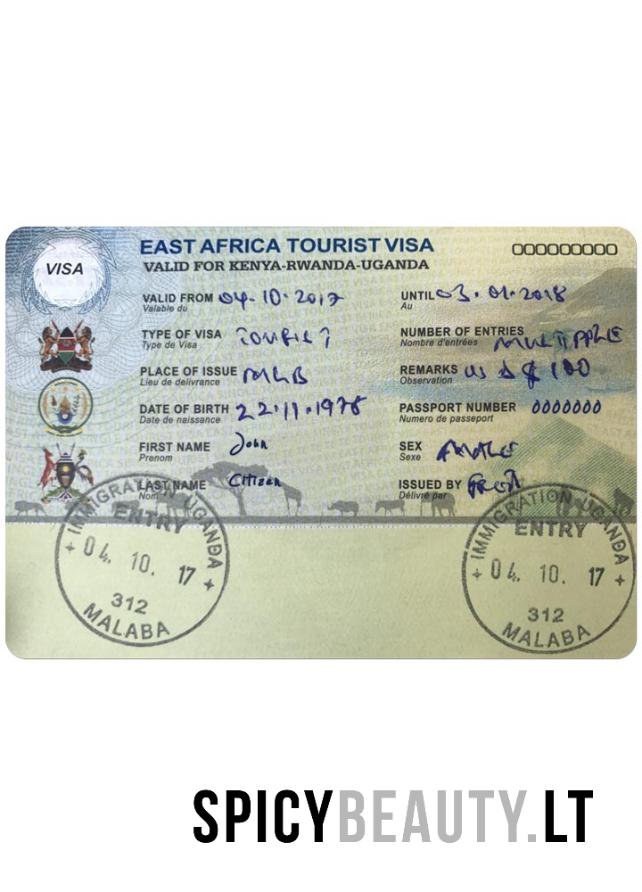 EAST AFRICA TOURIST VISA
000000000
VISA
VALID FOR KENYA-RWANDA-UGANDA
VALID FROM 04.10.2017
Valable du
UNTIL 03.01.2018
Au
TYPE OF VISA TOURIST
Type de Visa
NUMBER OF ENTRIES MULTIPPLE
Nombre d'entrées
PLACE OF ISSUE MLB
Lieu de delivrance
REMARKS US $ 100
Observation
DATE OF BIRTH 22.11.1978
Date de naissance
PASSPORT NUMBER 0000000
Numero de passeport
FIRST NAME John
Prenom
SEX MALE
Sexe
LAST NAME Citizen
Nom
ISSUED BY
Délivré par
IMMIGRATION UGANDA
ENTRY
04. 10. 17
312
MALABA
IMMIGRATION UGANDA
ENTRY
04. 10. 17
312
MALABA
SPICYBEAUTY.LT